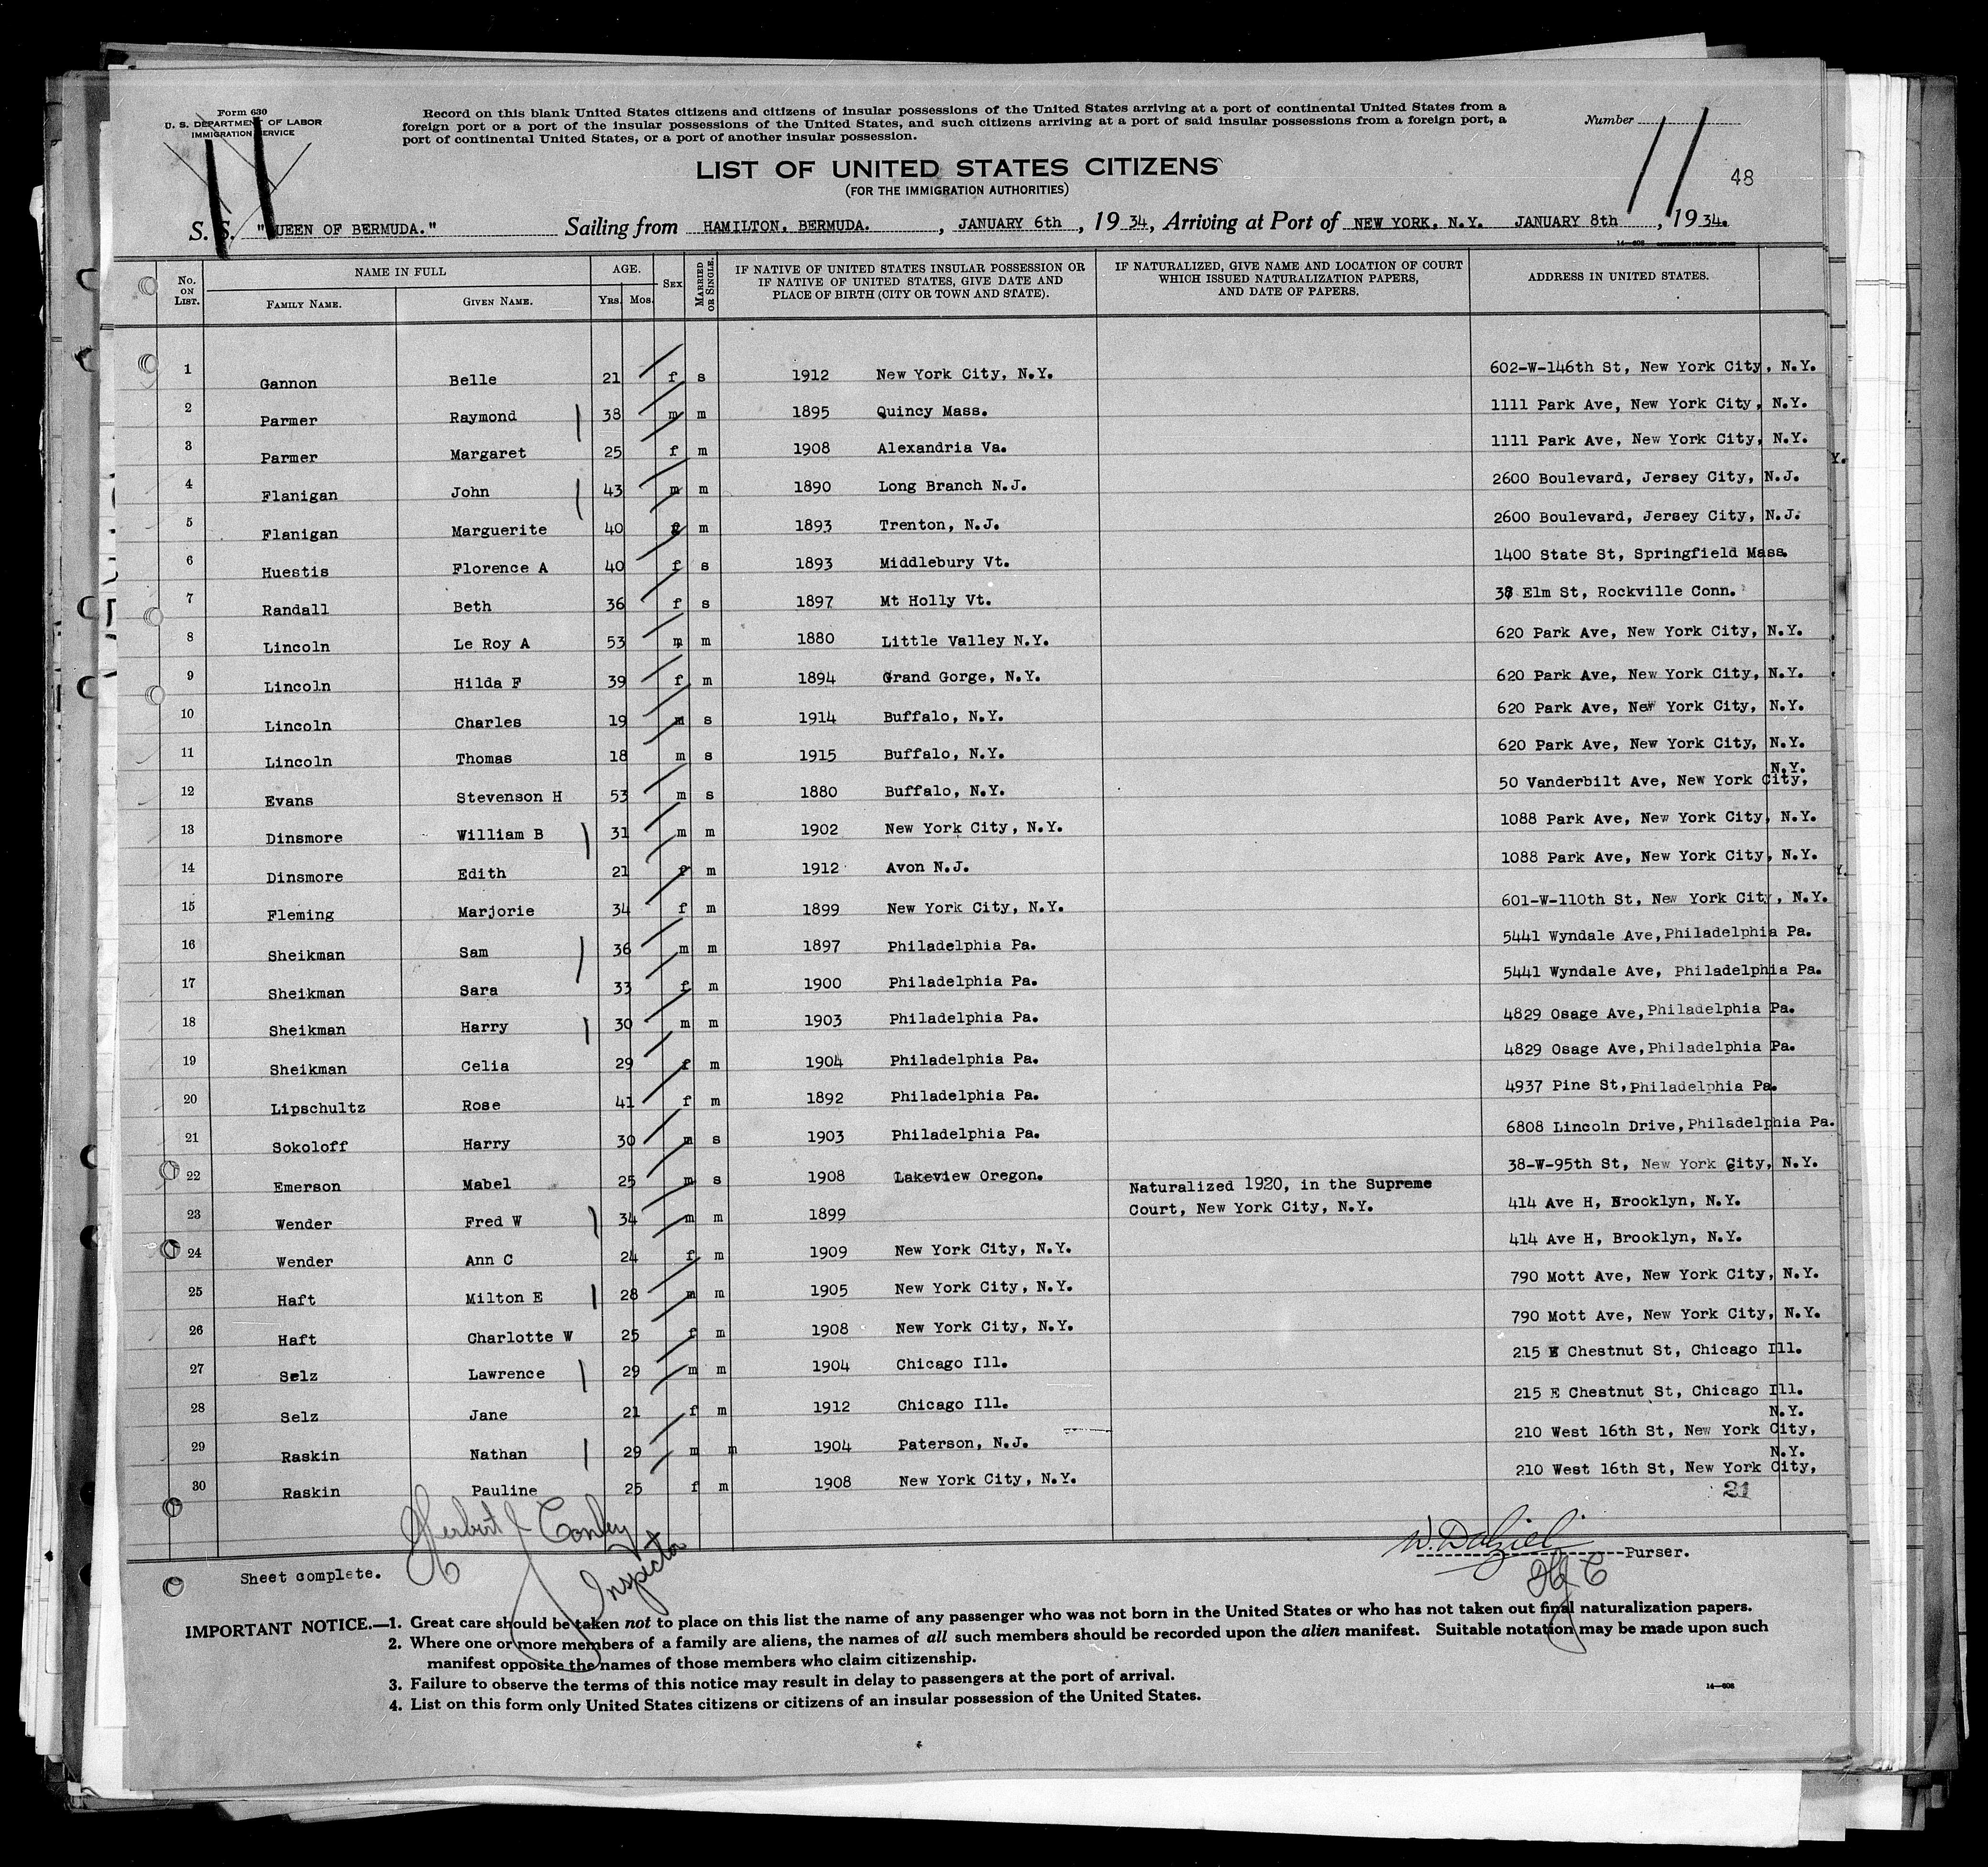 Form 630
U. S. DEPARTMENT OF LABOR
IMMIGRATION SERVICE
Record on this blank United States citizens and citizens of insular possessions of the United States arriving at a port of continental United States from a
foreign port or a port of the insular possessions of the United States, and such citizens arriving at a port of said insular possessions from a foreign port, a
port of continental United States, or a port of another insular possession.
Number
11
48
LIST OF UNITED STATES CITIZENS
(FOR THE IMMIGRATION AUTHORITIES)
S. S. "QUEEN OF BERMUDA." Sailing from HAMILTON, BERMUDA. , JANUARY 6th , 19 34, Arriving at Port of NEW YORK, N.Y. JANUARY 8th , 19 34.
No. ON LIST. NAME IN FULL FAMILY NAME. GIVEN NAME. AGE. Yrs. Mos. SEX MARRIED OR SINGLE. IF NATIVE OF UNITED STATES INSULAR POSSESSION OR IF NATIVE OF UNITED STATES, GIVE DATE AND PLACE OF BIRTH (CITY OR TOWN AND STATE). IF NATURALIZED, GIVE NAME AND LOCATION OF COURT WHICH ISSUED NATURALIZATION PAPERS, AND DATE OF PAPERS. ADDRESS IN UNITED STATES.
1 Gannon Belle 21 f s 1912 New York City, N.Y. 602-W-146th St, New York City, N.Y.
2 Parmer Raymond 38 m m 1895 Quincy Mass. 1111 Park Ave, New York City, N.Y.
3 Parmer Margaret 25 f m 1908 Alexandria Va. 1111 Park Ave, New York City, N.Y.
4 Flanigan John 43 m m 1890 Long Branch N.J. 2600 Boulevard, Jersey City, N.J.
5 Flanigan Marguerite 40 f m 1893 Trenton, N.J. 2600 Boulevard, Jersey City, N.J.
6 Huestis Florence A 40 f s 1893 Middlebury Vt. 1400 State St, Springfield Mass.
7 Randall Beth 36 f s 1897 Mt Holly Vt. Elm St, Rockville Conn.
8 Lincoln Le Roy A 53 m m 1880 Little Valley N.Y. 620 Park Ave, New York City, N.Y.
9 Lincoln Hilda F 39 f m 1894 Grand Gorge, N.Y. 620 Park Ave, New York City, N.Y.
10 Lincoln Charles 19 m s 1914 Buffalo, N.Y. 620 Park Ave, New York City, N.Y.
11 Lincoln Thomas 18 m s 1915 Buffalo, N.Y. 620 Park Ave, New York City, N.Y.
12 Evans Stevenson H 53 m s 1880 Buffalo, N.Y. 50 Vanderbilt Ave, New York City, N.Y.
13 Dinsmore William B 31 m m 1902 New York City, N.Y. 1088 Park Ave, New York City, N.Y.
14 Dinsmore Edith 21 f m 1912 Avon N.J. 1088 Park Ave, New York City, N.Y.
15 Fleming Marjorie 34 f m 1899 New York City, N.Y. 601-W-110th St, New York City, N.Y.
16 Sheikman Sam 36 m m 1897 Philadelphia Pa. 5441 Wyndale Ave, Philadelphia Pa.
17 Sheikman Sara 33 f m 1900 Philadelphia Pa. 5441 Wyndale Ave, Philadelphia Pa.
18 Sheikman Harry 30 m m 1903 Philadelphia Pa. 4829 Osage Ave, Philadelphia Pa.
19 Sheikman Celia 29 f m 1904 Philadelphia Pa. 4829 Osage Ave, Philadelphia Pa.
20 Lipschultz Rose 41 f m 1892 Philadelphia Pa. 4937 Pine St, Philadelphia Pa.
21 Sokoloff Harry 30 m s 1903 Philadelphia Pa. 6808 Lincoln Drive, Philadelphia Pa.
22 Emerson Mabel 25 m s 1908 Lakeview Oregon. 38-W-95th St, New York City, N.Y.
23 Wender Fred W 34 m m 1899 Naturalized 1920, in the Supreme Court, New York City, N.Y. 414 Ave H, Brooklyn, N.Y.
24 Wender Ann C 24 f m 1909 New York City, N.Y. 414 Ave H, Brooklyn, N.Y.
25 Haft Milton E 28 m m 1905 New York City, N.Y. 790 Mott Ave, New York City, N.Y.
26 Haft Charlotte W 25 f m 1908 New York City, N.Y. 790 Mott Ave, New York City, N.Y.
27 Selz Lawrence 29 m m 1904 Chicago Ill. 215 E Chestnut St, Chicago Ill.
28 Selz Jane 21 f m 1912 Chicago Ill. 215 E Chestnut St, Chicago Ill.
29 Raskin Nathan 29 m m 1904 Paterson, N.J. 210 West 16th St, New York City, N.Y.
30 Raskin Pauline 25 f m 1908 New York City, N.Y. 210 West 16th St, New York City, N.Y.
21
Herbert J Conley
Inspector
W. Dalziel
Purser.
HJC
Sheet complete.
IMPORTANT NOTICE.—1. Great care should be taken not to place on this list the name of any passenger who was not born in the United States or who has not taken out final naturalization papers.
2. Where one or more members of a family are aliens, the names of all such members should be recorded upon the alien manifest. Suitable notation may be made upon such
manifest opposite the names of those members who claim citizenship.
3. Failure to observe the terms of this notice may result in delay to passengers at the port of arrival.
4. List on this form only United States citizens or citizens of an insular possession of the United States.
14—608